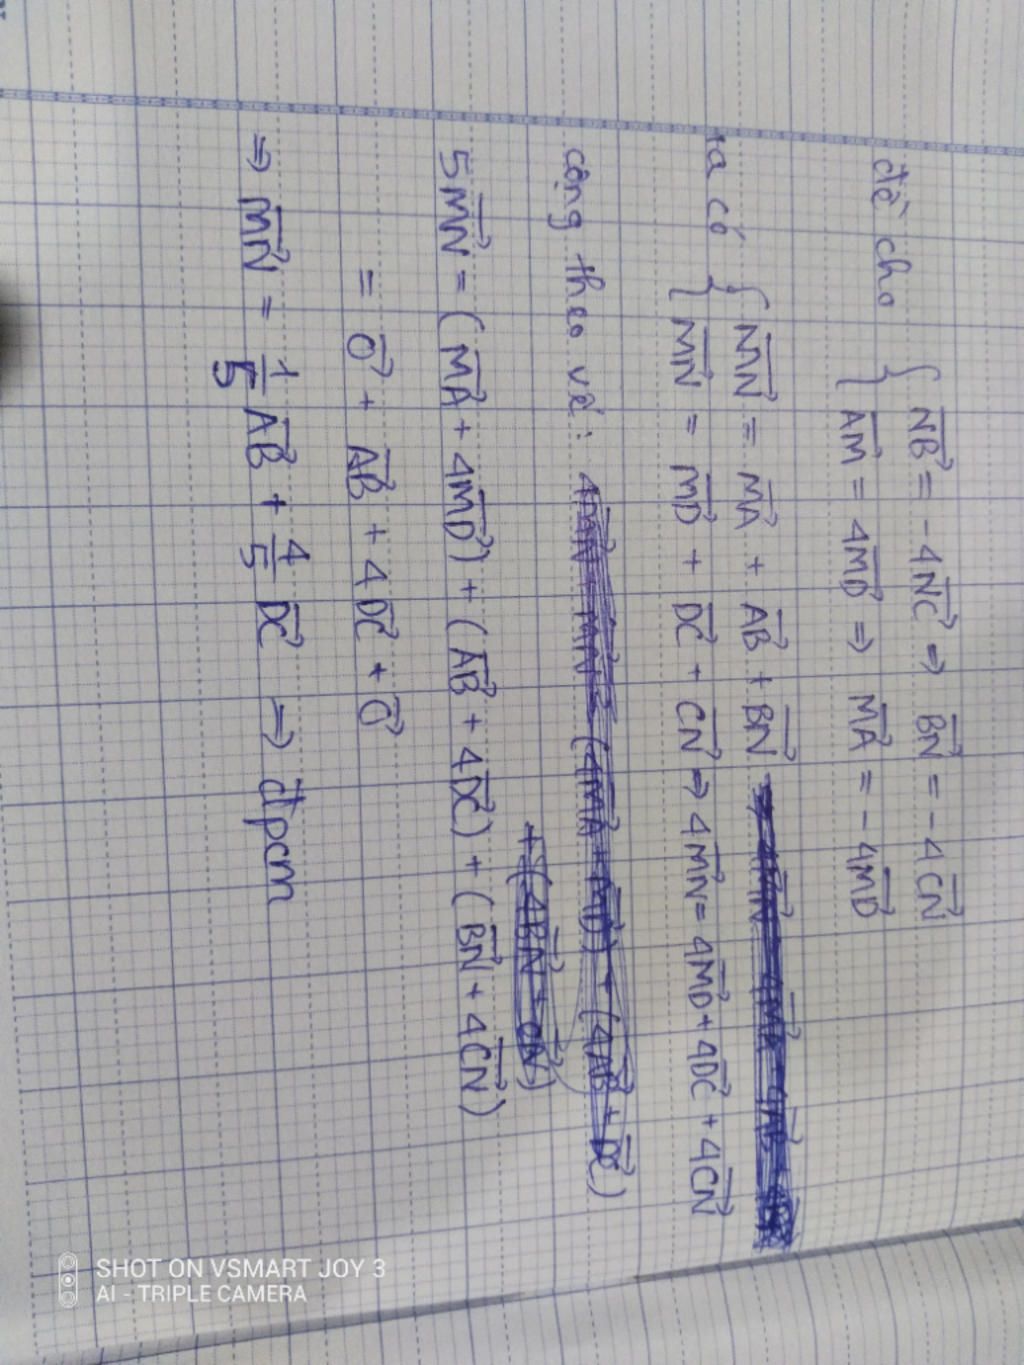 đề cho { NB⃗ = -4NC⃗ ⇒ BN⃗ = -4CN⃗
AM⃗ = 4MD⃗ ⇒ MA⃗ = -4MD⃗
ta có { MN⃗ = MA⃗ + AB⃗ + BN⃗
MN⃗ = MD⃗ + DC⃗ + CN⃗ ⇒ 4MN⃗ = 4MD⃗ + 4DC⃗ + 4CN⃗
cộng theo vế :
5MN⃗ = (MA⃗ + 4MD⃗) + (AB⃗ + 4DC⃗) + (BN⃗ + 4CN⃗)
= O⃗ + AB⃗ + 4DC⃗ + O⃗
⇒ MN⃗ = 1/5 AB⃗ + 4/5 DC⃗ ⇒ đpcm
SHOT ON VSMART JOY 3
AI - TRIPLE CAMERA